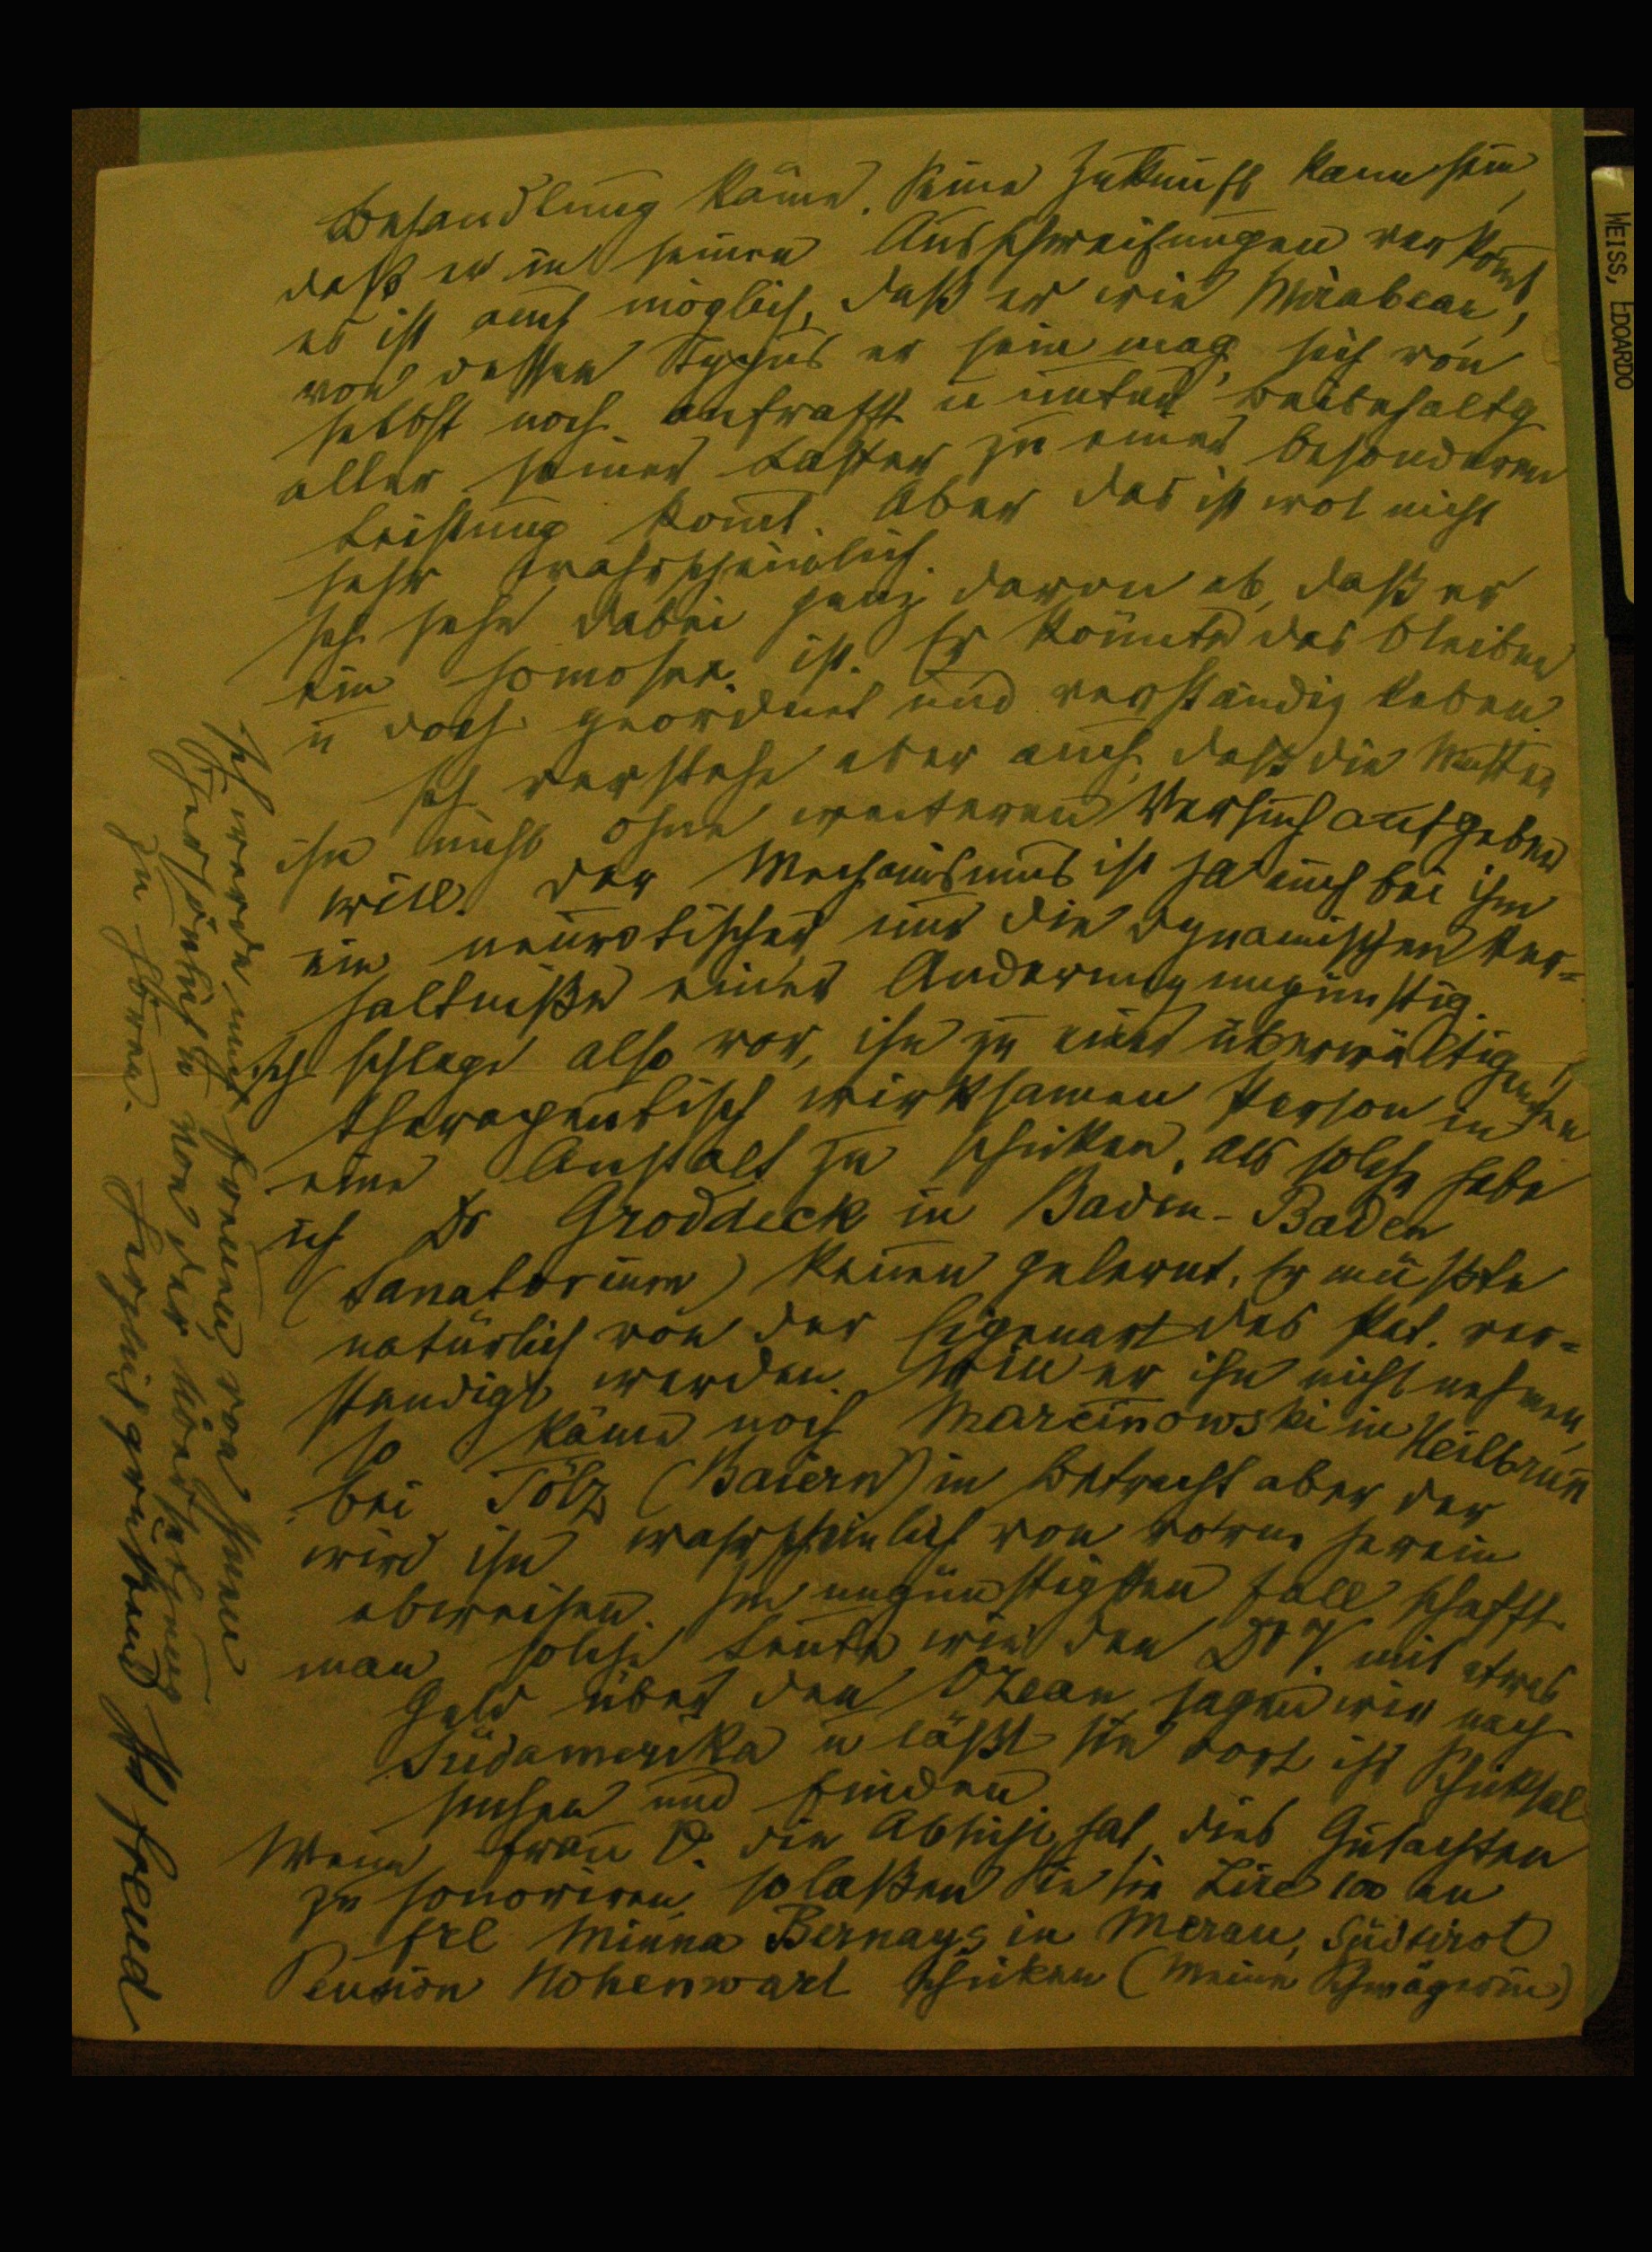 Behandlung käme. Seine Zukunft kann sein,
daß er in seinen Ausschweifungen verkomt,
es ist auch möglich, daß er wie Mirabeau,
von dessen Typus er sein mag, sich von
selbst noch aufrafft u unter Beibehaltg
aller seiner Laster zu einer besonderen
Leistung komt. Aber das ist wol nicht
sehr wahrscheinlich.
Ich sehe dabei ganz davon ab, daß er
ein homosex. ist. Er könnte das bleiben
u doch geordnet und verständig leben.
Ich verstehe aber auch, daß die Mutter
ihn nicht ohne weiteren Versuch aufgeben
will. Der Mechanismus ist ja auch bei ihm
ein neurotischer nur die dynamischen Ver=
hältniße einer Änderung ungünstig.
Ich schlage also vor, ihn zu einer überwältigenden,
therapeutisch wirksamen Person in
eine Anstalt zu schicken. Als solche habe
ich Dr Groddeck in Baden-Baden
(Sanatorium) kennen gelernt. Er müßte
natürlich von der Eigenart des Pat. ver=
ständigt werden. Will er ihn nicht nehmen,
so käme noch Marcinowski in Heilbrunn
bei Tölz (Baiern) in Betracht aber der
wird ihn wahrscheinlich von vorne herein
abweisen. Im ungünstigsten Fall schafft
man solche Leute wie den Dr V. mit etwas
Geld über den Ozean, sagen wir nach
Südamerika u läßt sie dort ihr Schicksal
suchen und finden.
Wenn Frau V. die Absicht hat, dies Gutachten
zu honoriren, so laßen Sie sie Lire 100 an
Frl Minna Bernays in Meran, Südtirol
Pension Hohenwart schicken (meine Schwägerin)
Ich werde mich freuen von Ihnen
persönlich u von der
zu hören. Herzlich grüßend Ihr Freud
WEISS, EDOARDO